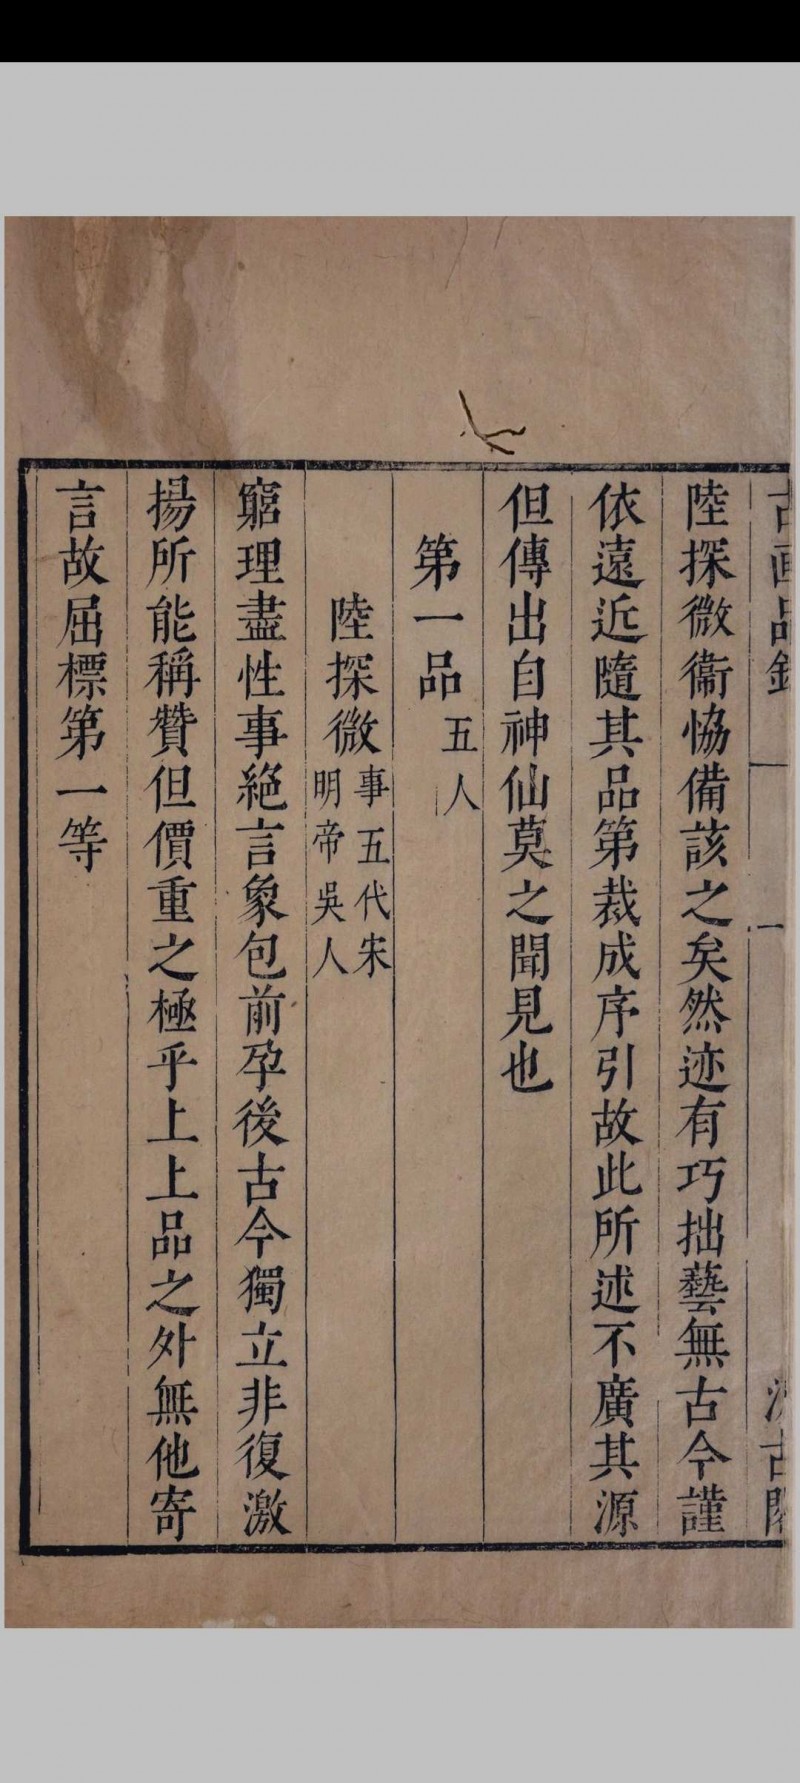 古画品録 一 一 汲古閣
陸探微衞恊備該之矣然迹有巧拙藝無古今謹
依遠近隨其品第裁成序引故此所述不廣其源
但傳出自神仙莫之聞見也
第一品五人
陸探微事五代宋明帝吳人
窮理盡性事絕言象包前孕後古今獨立非復激
揚所能稱贊但價重之極乎上上品之外無他寄
言故屈標第一等